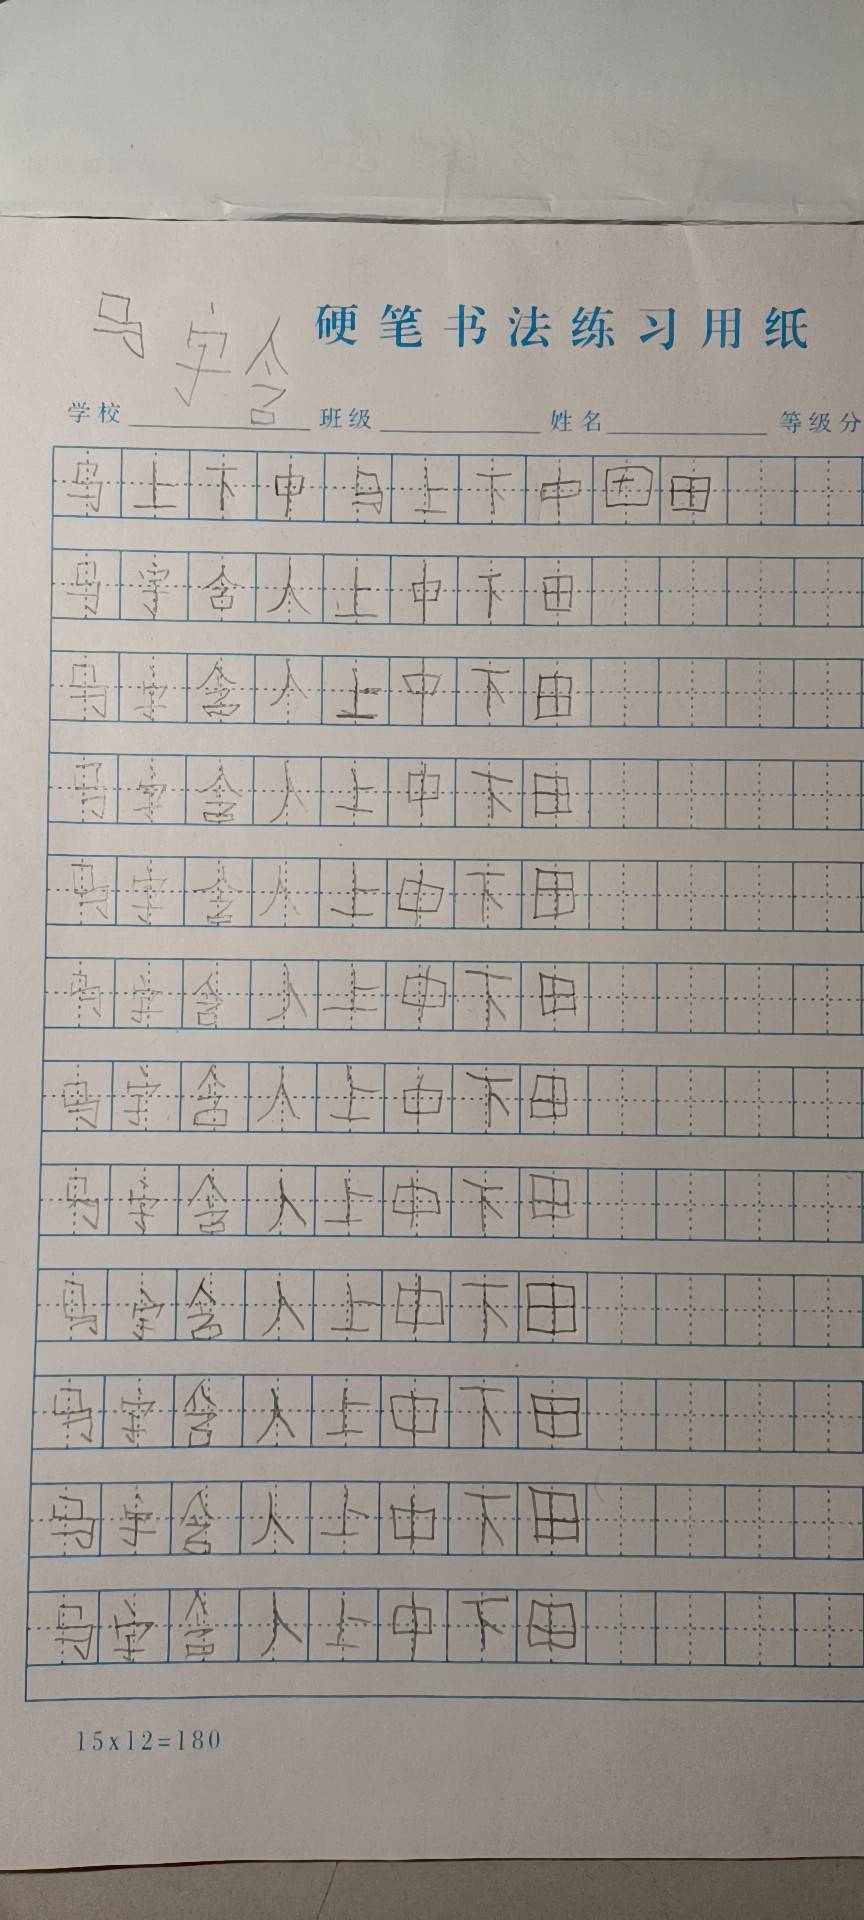 马 字 含
硬笔书法练习用纸
学校 班级 姓名 等级分
马 上 下 中 马 上 下 中 田
马 字 含 人 上 中 下 田
马 字 含 人 上 中 下 田
马 字 含 人 上 中 下 田
马 字 含 人 上 中 下 田
马 字 含 人 上 中 下 田
马 字 含 人 上 中 下 田
马 字 含 人 上 中 下 田
马 字 含 人 上 中 下 田
马 字 含 人 上 中 下 田
马 字 含 人 上 中 下 田
马 字 含 人 上 中 下 田
15x12=180